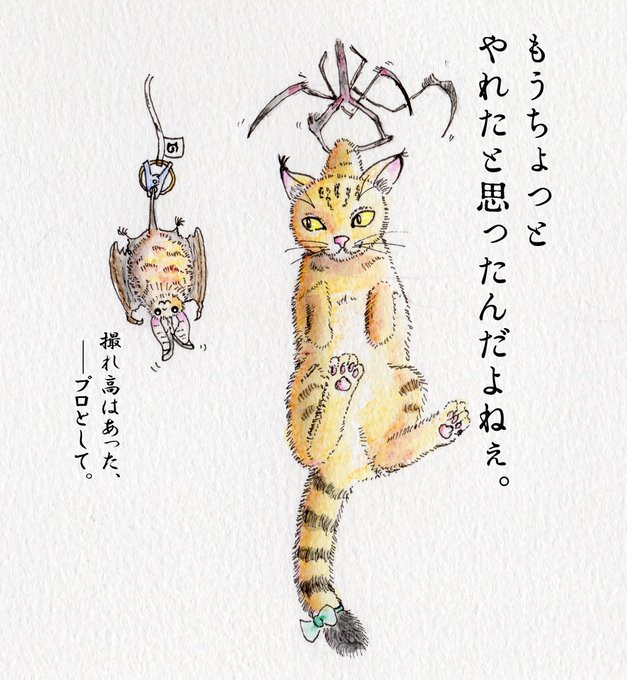 もうちょっと
やれたと思ったんだよねぇ。
撮れ高はあった、
―プロとして。